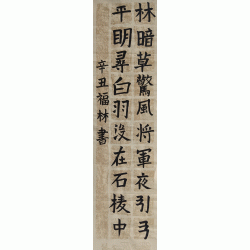 林暗草驚風将軍夜引弓
平明尋白羽没在石棱中
辛丑福林書